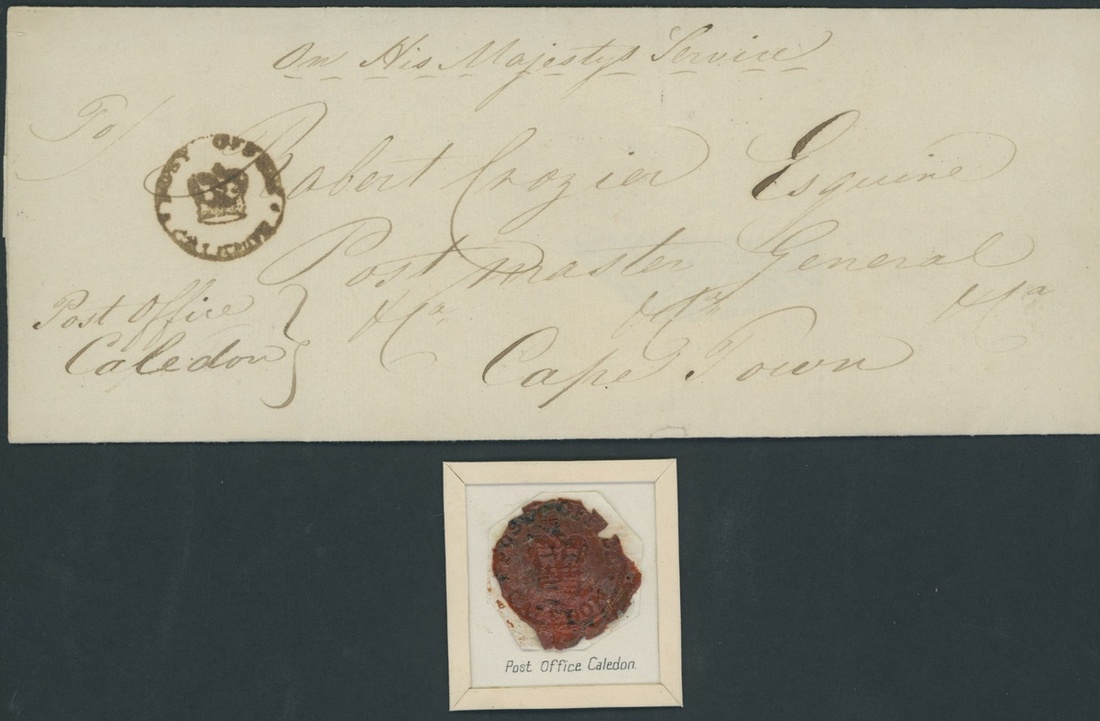 On His Majestys Service
To/
Robert Crozier Esquire
Post master General
&Ca &Ca &Ca
Cape Town
Post Office
Caledon
POST OFFICE
POST OFFICE
Post Office Caledon